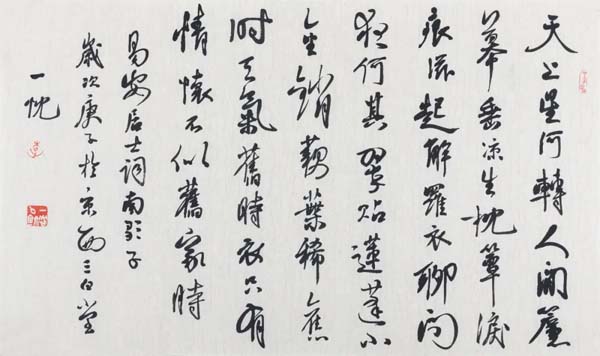 天上星河轉人間簾
幕垂凉生枕簟淚
痕滋起解羅衣聊問
夜何其翠貼蓮蓬小
金銷藕葉稀舊
時天氣舊時衣只有
情懷不似舊家時
易安居士詞南歌子
歲次庚子於京西三白堂
一忱